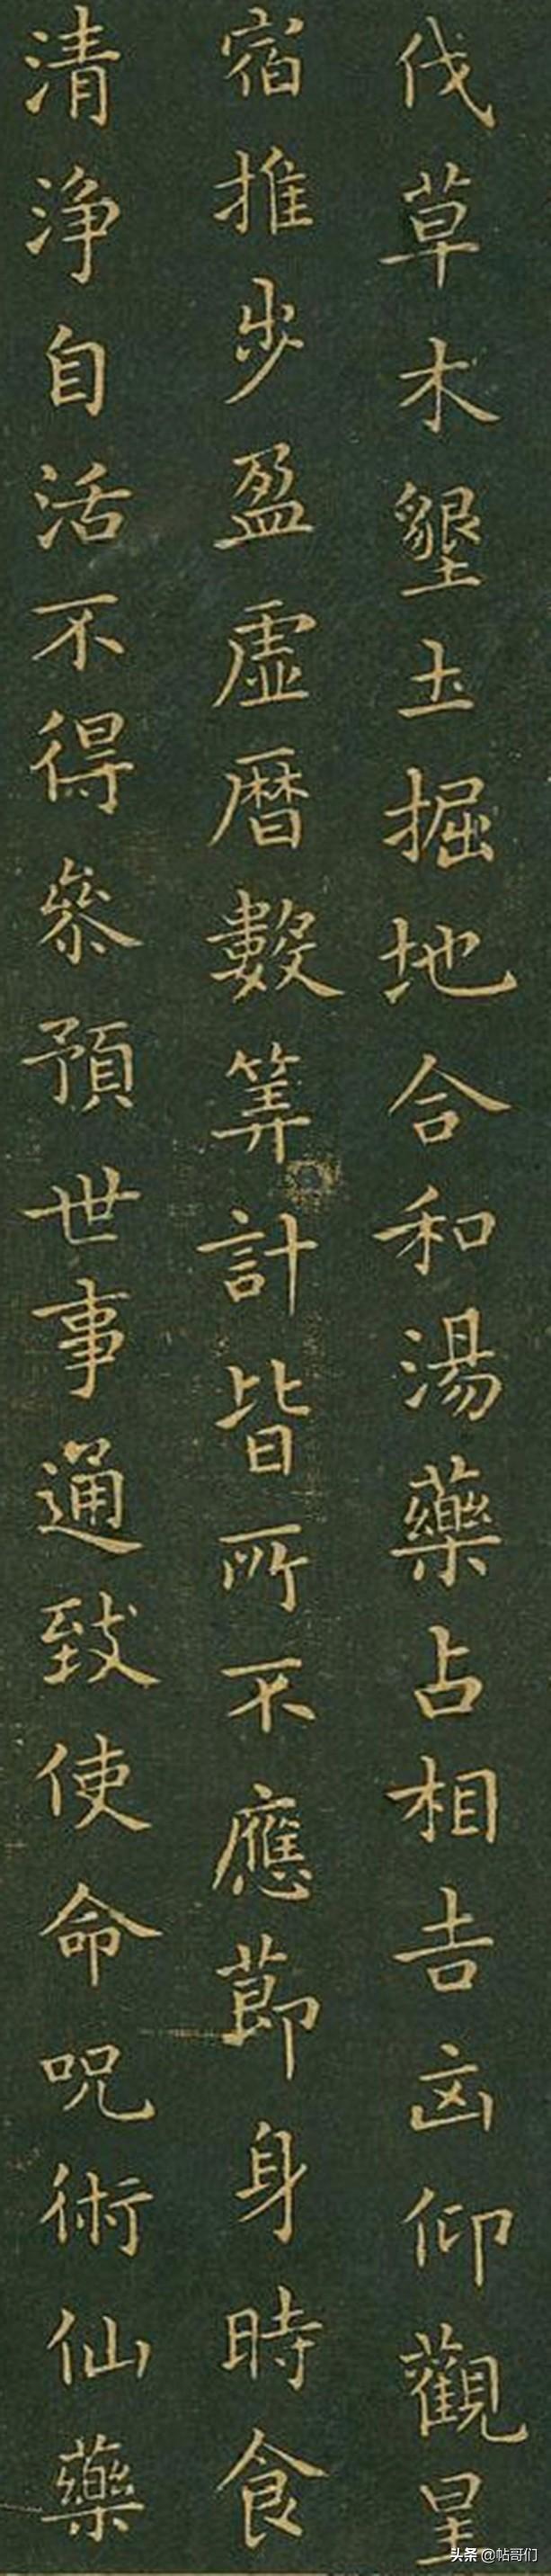 伐草木墾土掘地合和湯藥占相吉凶仰觀星
宿推步盈虛曆數筭計皆所不應節身時食
清淨自活不得叅預世事通致使命呪術仙藥
头条 @帖哥们